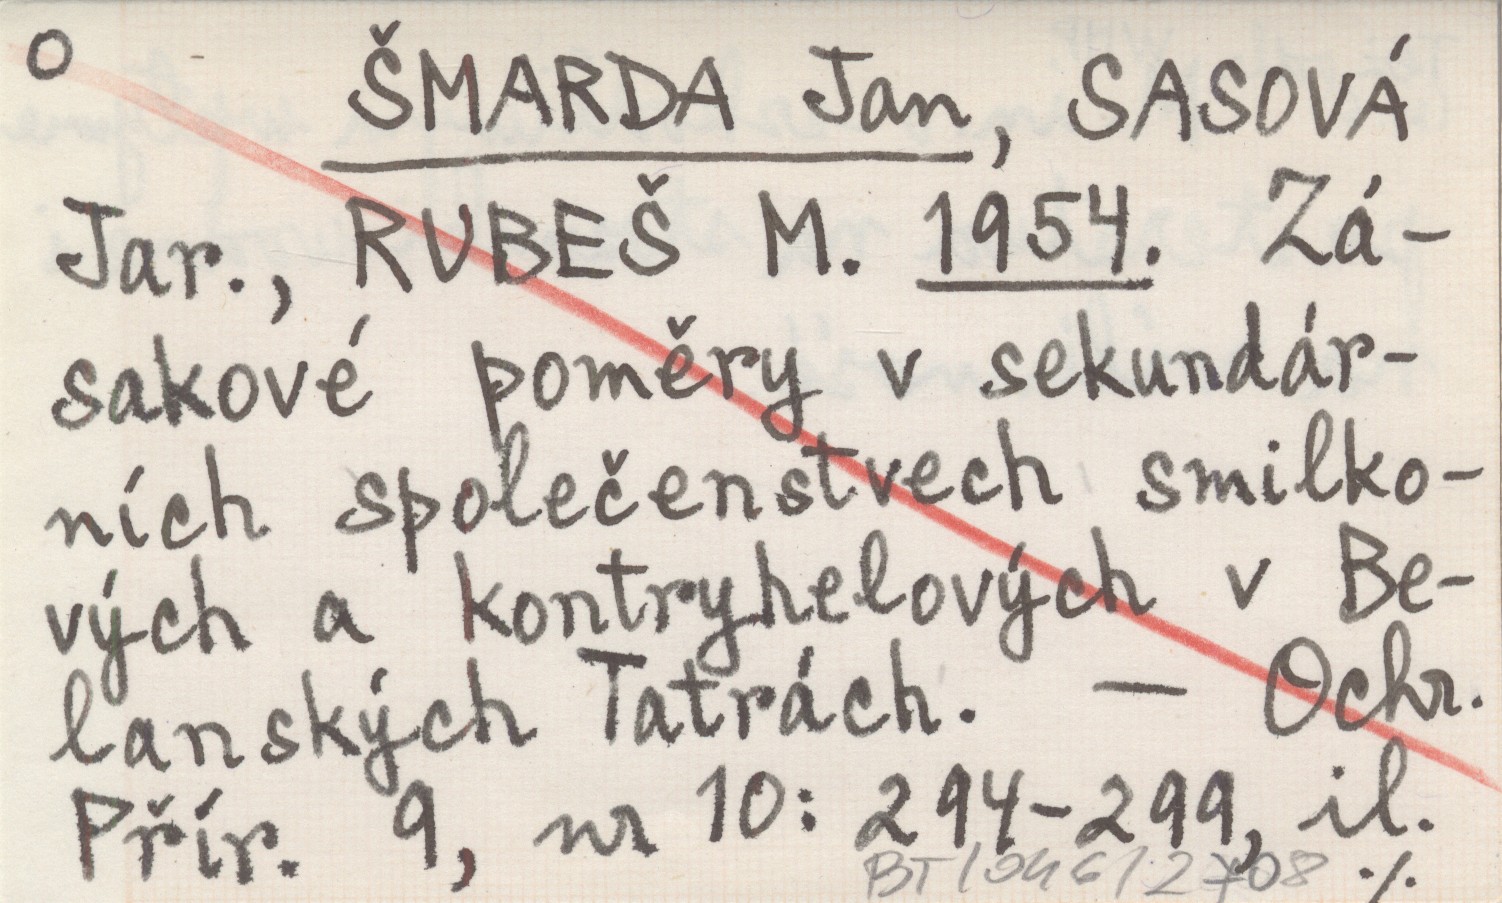 O ŠMARDA Jan, SASOVÁ
Jar., RUBEŠ M. 1954. Zá-
sakové poměry v sekundár-
ních společenstvech smilko-
vých a kontryhelových v Be-
lanských Tatrách. — Ochr.
Přír. 9, nr 10: 294-299, il.
./.